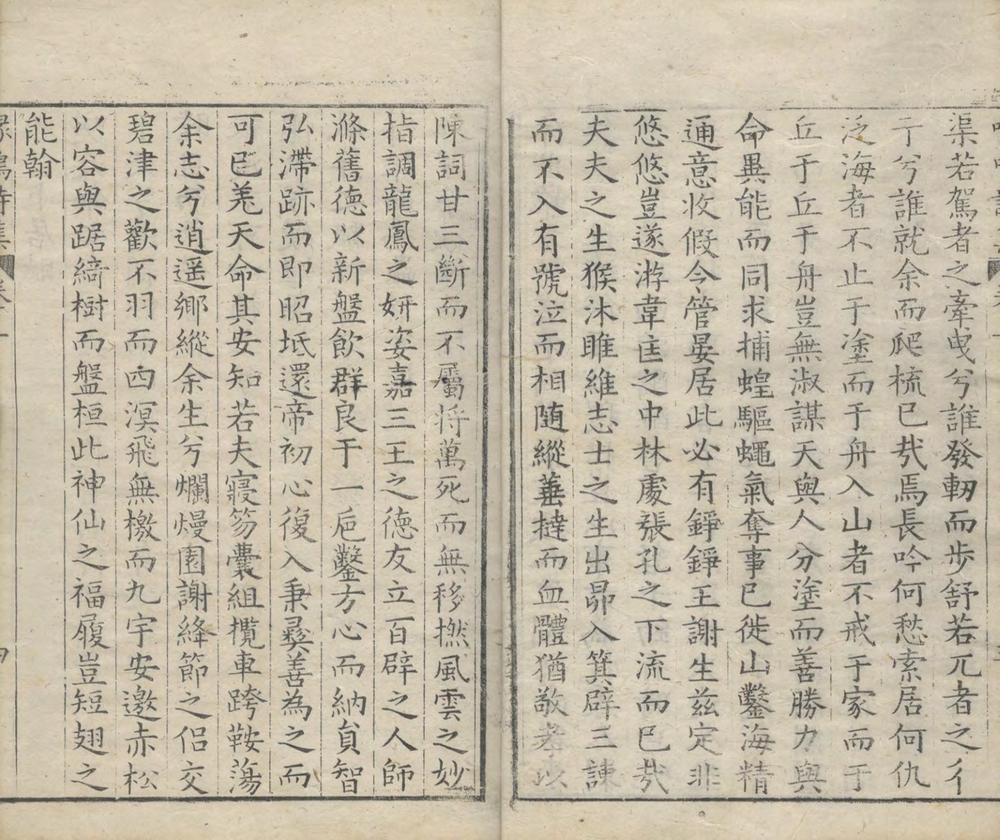 渠若駕者之牽曳兮誰發軔而步舒若兀者之彳
亍兮誰就余而爬梳已㢤焉長吟何愁索居何仇
泛海者不止于塗而于舟入山者不戒于家而于
丘于丘于舟豈無淑謀天與人分塗而善勝力與
命異能而同求捕蝗驅蠅氣奪事已徙山鑿海精
通意收假令管晏居此必有錚錚王謝生玆定非
悠悠豈遂游韋匡之中林處張孔之下流而已㢤
夫夫之生猴沐雎維志士之生出昴入箕辟三諫
而不入有號泣而相随縱菙撻而血體猶敬老以
陳詞甘三斷而不屬将萬死而無移撚風雲之妙
指調龍鳳之妍姿嘉三王之德友立百辟之人師
滌舊德以新盤飲群良于一巵鑿方心而納負智
弘滯跡而即昭坻還帝初心復入秉彛善為之而
可已羌天命其安知若夫寢笏囊組檻車跨鞍蕩
余志兮逍遥鄉縱余生兮爛熳園謝絳節之侶交
碧津之歡不羽而四溟飛無檄而九宇安邀赤松
以容與踞綺樹而盤桓此神仙之福履豈短翅之
能翰